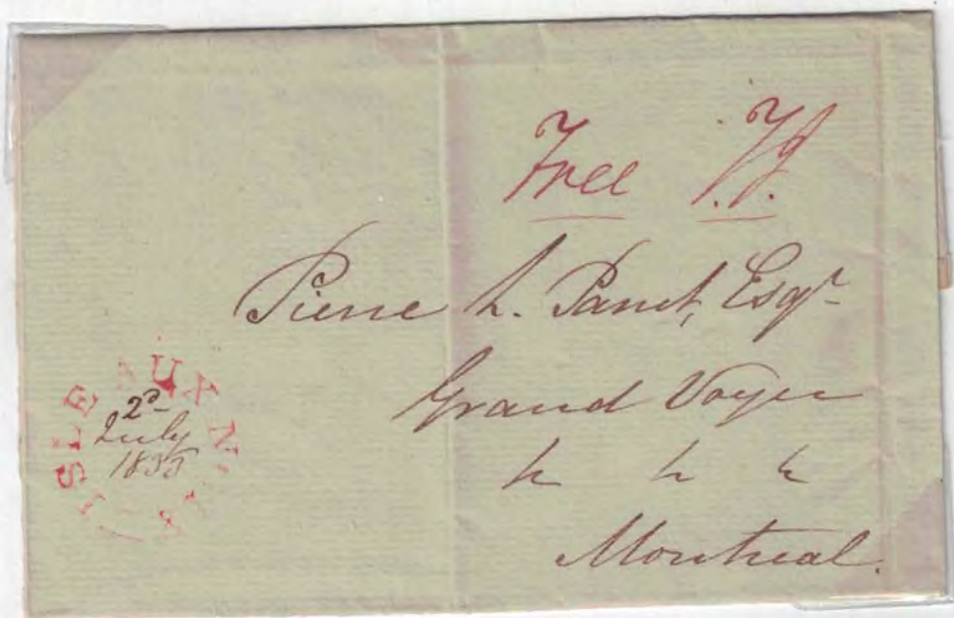 Free T.J.
Pierre L. Panet, Esqr
Grand Voyer
&c &c &c
Montreal.
ISLE AUX NOIX
2d
July
1835